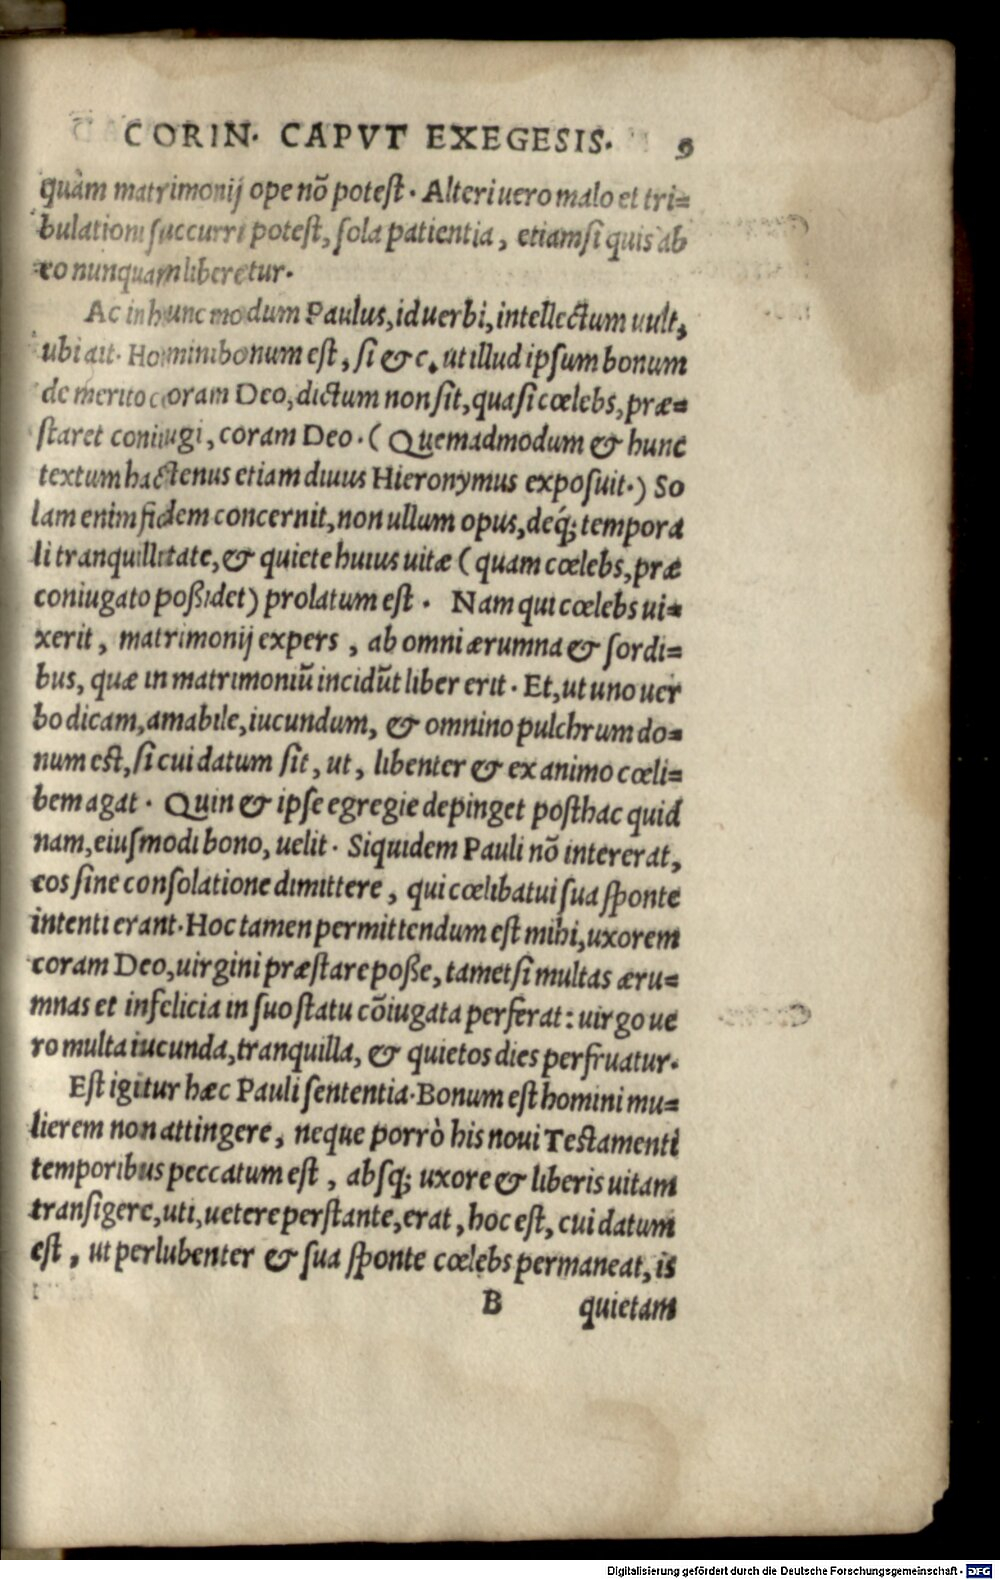 CORIN. CAPVT EXEGESIS. 9
quàm matrimonij ope nō potest. Alteri uero malo et tri=
bulationi succurri potest, sola patientia, etiamsi quis ab
eo nunquam liberetur.
Ac in hunc modum Paulus, id uerbi, intellectum uult,
ubi ait. Homini bonum est, si & c. ut illud ipsum bonum
de merito coram Deo, dictum non sit, quasi cœlebs, præ=
staret coniugi, coram Deo. (Quemadmodum & hunc
textum hactenus etiam diuus Hieronymus exposuit.) So
lam enim fidem concernit, non ullum opus, deq́; tempora
li tranquillitate, & quiete huius uitæ (quam cœlebs, præ
coniugato poßidet) prolatum est. Nam qui cœlebs ui=
xerit, matrimonij expers, ab omni ærumna & sordi=
bus, quæ in matrimoniū incidūt liber erit. Et, ut uno uer
bo dicam, amabile, iucundum, & omnino pulchrum do=
num est, si cui datum sit, ut, libenter & ex animo cœli=
bem agat. Quin & ipse egregie depinget posthac quid
nam, eiusmodi bono, uelit. Siquidem Pauli nō intererat,
eos sine consolatione dimittere, qui cœlibatui sua sponte
intenti erant. Hoc tamen permittendum est mihi, uxorem
coram Deo, uirgini præstare poße, tametsi multas æru=
mnas et infelicia in suo statu cōiugata perferat: uirgo ue
ro multa iucunda, tranquilla, & quietos dies perfruatur.
Est igitur hæc Pauli sententia. Bonum est homini mu=
lierem non attingere, neque porrò his noui Testamenti
temporibus peccatum est, absq; uxore & liberis uitam
transigere, uti, uetere perstante, erat, hoc est, cui datum
est, ut perlubenter & sua sponte cœlebs permaneat, is
B quietam
Digitalisierung gefördert durch die Deutsche Forschungsgemeinschaft - DFG